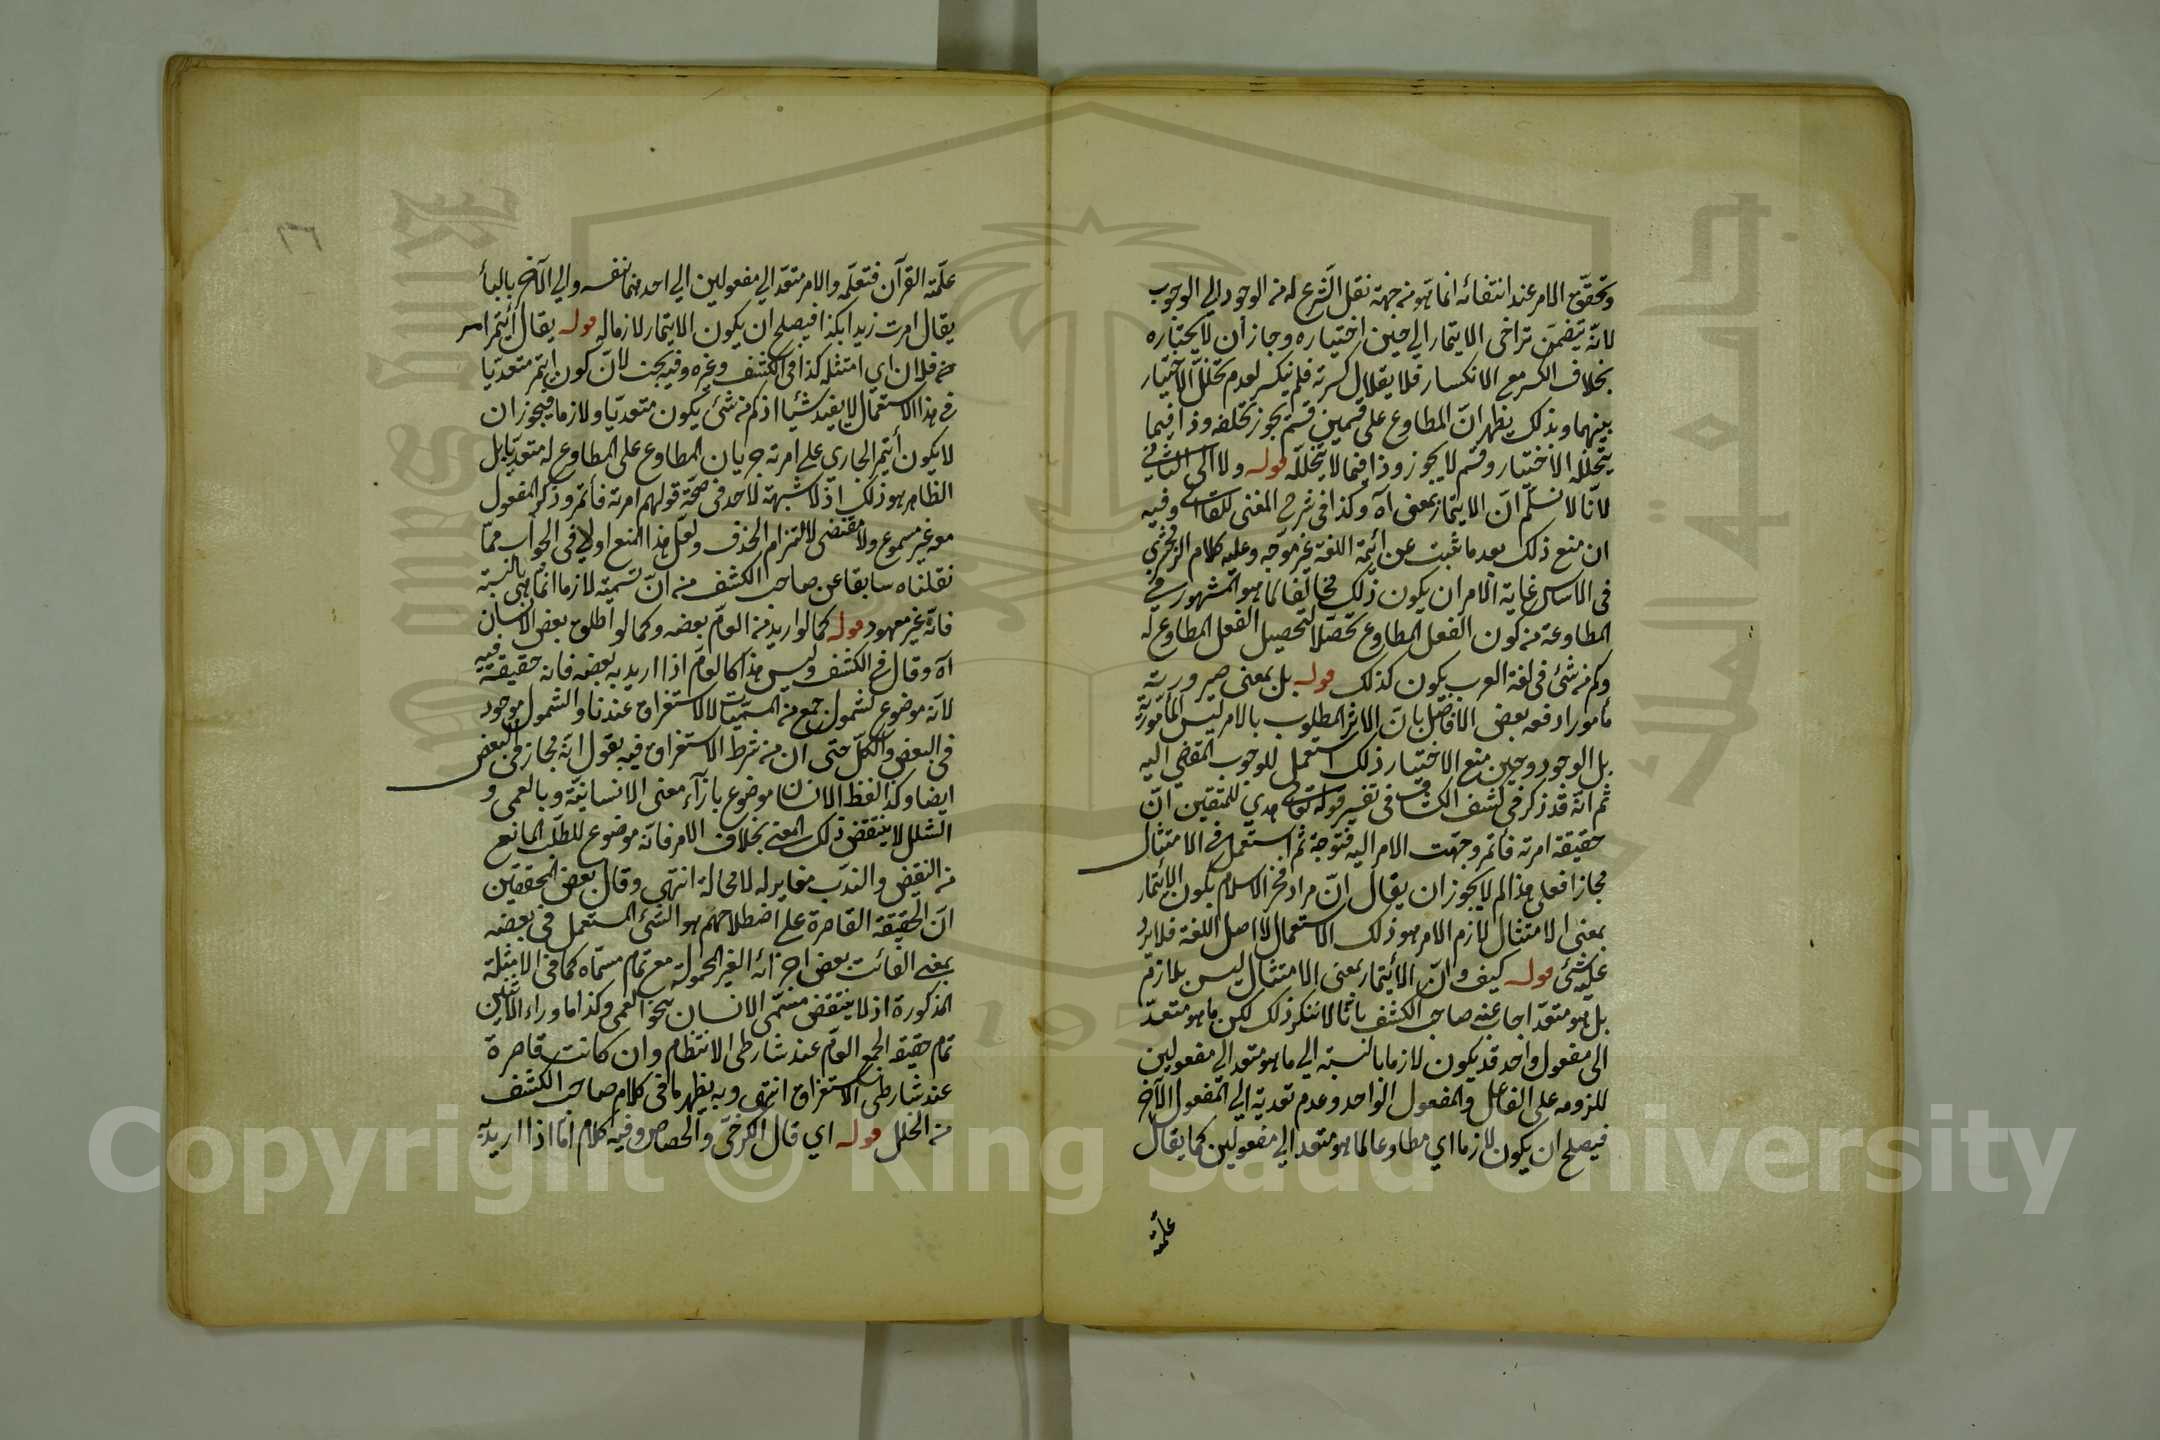 وتحقق الامر عند انتفائه انما هو من جهة نقل الشرع له من الوجود الي الوجوب
لانّه يتضمن تراخى الايتمار الي حين اختياره وجاز أن لا يختاره
بخلاف الكسر مع الانكسار فلا يقال كسرته فلم ينكسر لعدم تخلل الاختيار
بينهما وبذلك يظهر انّ المطاوع على قسمين قسم يجوز تخلفه وذا فيما
يتخلله الاختيار وقسم لا يجوز وذا فيما لا يتخلله قوله ولا الى الثاني
لانّا لا نسلّم انّ الايتمار بمعنى آه وكذا في شرح المغنى للقاآنى وفيه
ان منع ذلك بعد ما ثبت عن ائمة اللغة غير موجّه وعليه كلام الزمخشري
في الاساس غاية الامر ان يكون ذلك مخالفا لما هو المشهور في
المطاوعة من كون الفعل المطاوع تحصّلا لتحصيل الفعل المطاوع له
وكم من شئ في لغة العرب يكون كذلك قوله بل بمعنى صيرورته
مأمورا دفعه بعض الافاضل بانّ الاثر المطلوب بالامر ليس المأمورية
بل الوجود وحين منع الاختيار ذلك استعمل للوجوب المفضي اليه
ثم انّه قد ذكر في كشف الكشاف في تفسير قوله تعالى هدي للمتقين انّ
حقيقة امرته فأتمر وجهت الامر اليه فتوجه ثم استعمل في الامتثال
مجازا فعلى هذا لم لا يجوز ان يقال انّ مراد فخر الاسلام بكون الايتمار
بمعنى الامتثال لازم الامر هو ذلك الاستعمال لا اصل اللغة فلا يرد
عليه شئ قوله كيف وانّ الأيتمار بمعنى الامتثال ليس بلازم
بل هو متعدّ اجاب عنه صاحب الكشف بانّا لا ننكر ذلك لكن ما هو متعدّ
الى مفعول واحد قد يكون لازما بالنسبة الي ما هو متعد الي مفعولين
للزومه على الفاعل والمفعول الواحد وعدم تعديه الي المفعول الآخر
فيصلح ان يكون لازما اي مطاوعا لما هو متعد الي مفعولين كما يقال
علمته
١٦
علّمته القرآن فتعلّمه والامر متعدّ الي مفعولين الي احدهما بنفسه والي الآخر بالباء
يقال امرت زيدا بكذا فيصلح ان يكون الايتمار لازما له قوله يقال أيتمر امر
من فلان اي امتثله كذا في الكشف وغيره وفيه بحث لانّ كون ايتمر متعدّيا
في هذا الاستعمال لا يفيد شيئا اذ كم من شئ يكون متعديّا ولازما فيجوز ان
لا يكون أيتمر الجاري علي امرته جريان المطاوع على المطاوع له متعدّيا بل
الظاهر هو ذلك اذ لا شبهة لاحد في صحّة قولهم امرته فأتمر وذكر المفعول
معه غير مسموع ولا مقتضى لالتزام الحذف ولعلّ هذا المنع اولي في الجواب ممّا
نقلناه سابقا عن صاحب الكشف من انّ تسميته لازما انما هي بالنسبة
فانّه غير معهود قوله كما لو اريد من العامّ بعضه وكما لو اطلق بعض الانسان
آه وقال في الكشف وليس هذا كالعامّ اذا اريد به بعضه فانه حقيقة فيه
لانّه موضوع لشمول جمع من المسمّيات لا لاستغراق عندنا والشمول موجود
في البعض والكلّ حتى ان من شرط الاستغراق فيه يقول انّه مجاز في البعض
ايضا وكذا لفظ الانسان موضوع بازآء معنى الانسانيّة وبالعمى و
الشلل لا ينتقض ذلك المعنى بخلاف الامر فانّه موضوع للطلب المانع
من النقيض والندب مغاير له لا محالة انتهى وقال بعض المحققين
انّ الحقيقة القاصرة على اصطلاحهم هو الشئ المستعمل في بعضه
بمعنى الفائت بعض اجزائه الغير المحمولة مع تمام مسمّاه كما في الامثلة
المذكورة اذ لا ينتقض مسمّى الانسان بنحو العمى وكذا ما وراء الاثنين
تمام حقيقة الجمع العامّ عند شارطي الانتظام وان كانت قاصرة
عند شارطى الاستغراق انتهى وبه يظهر ما في كلام صاحب الكشف
من الخلل قوله اي قال الكرخيّ والجصاص وفيه كلام امّا اذا اريد به